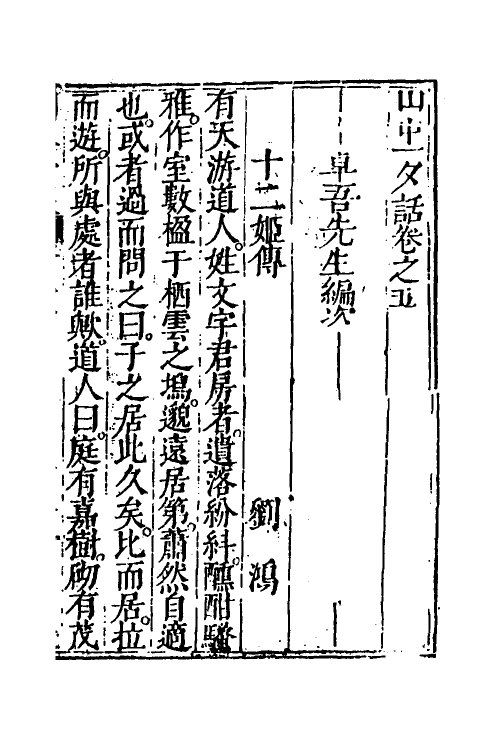 山中一夕話卷之五
卓吾先生編次
十二姬傳　劉鴻
有天游道人。姓文字君房者。遺落紛糾。醺酣騷
雅。作室數楹于栖雲之塢。邈遠居第。蕭然自適
也。或者過而問之曰。子之居此久矣。比而居。拉
而遊。所與處者誰歟。道人曰。庭有嘉樹。砌有茂